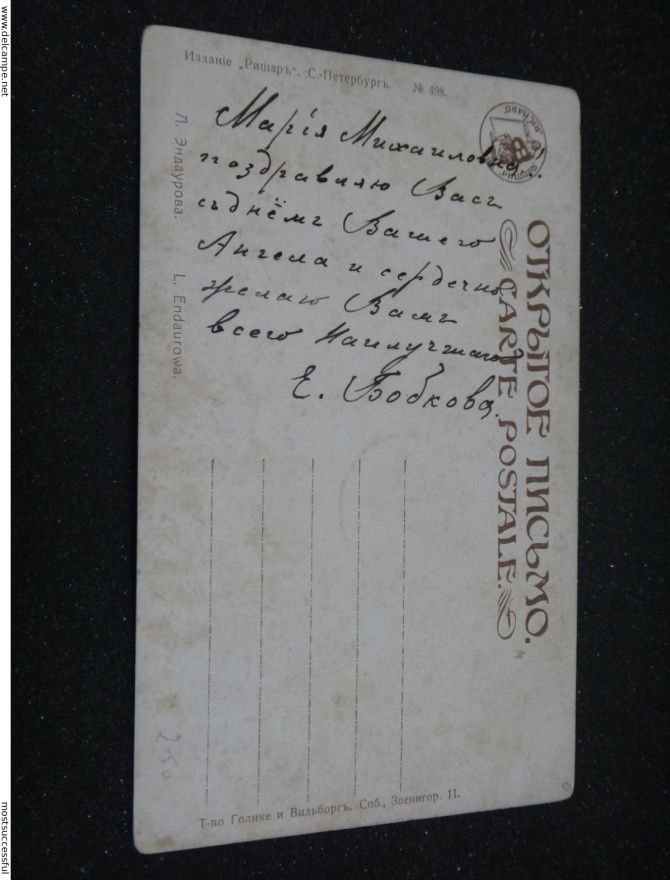 www.delcampe.net
Изданіе „Ришаръ“, С.-Петербургъ. № 498.
RICHARD
Л. Эндаурова. L. Endaurowa.
ОТКРЫТОЕ ПИСЬМО.
CARTE POSTALE.
Марія Михаиловна!
поздравляю Васъ
съ днёмъ Вашего
Ангела и сердечно
желаю Вамъ
всего Наилучшаго
Е. Бобкова.
2-50
Т-во Голике и Вильборгъ. Спб., Звенигор. 11.
mostsuccessful